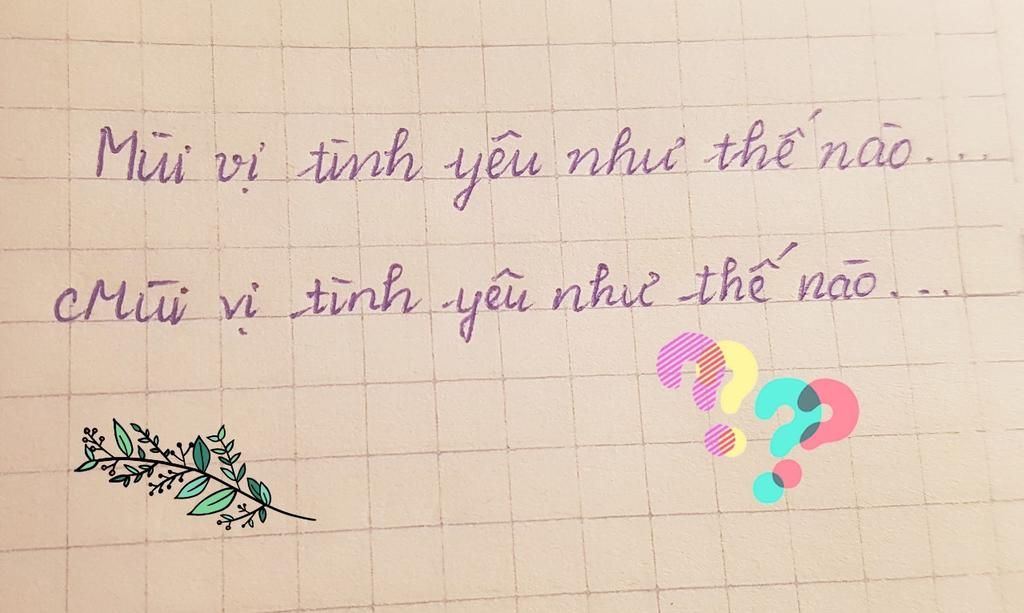 Mùi vị tình yêu như thế nào...
Mùi vị tình yêu như thế nào...